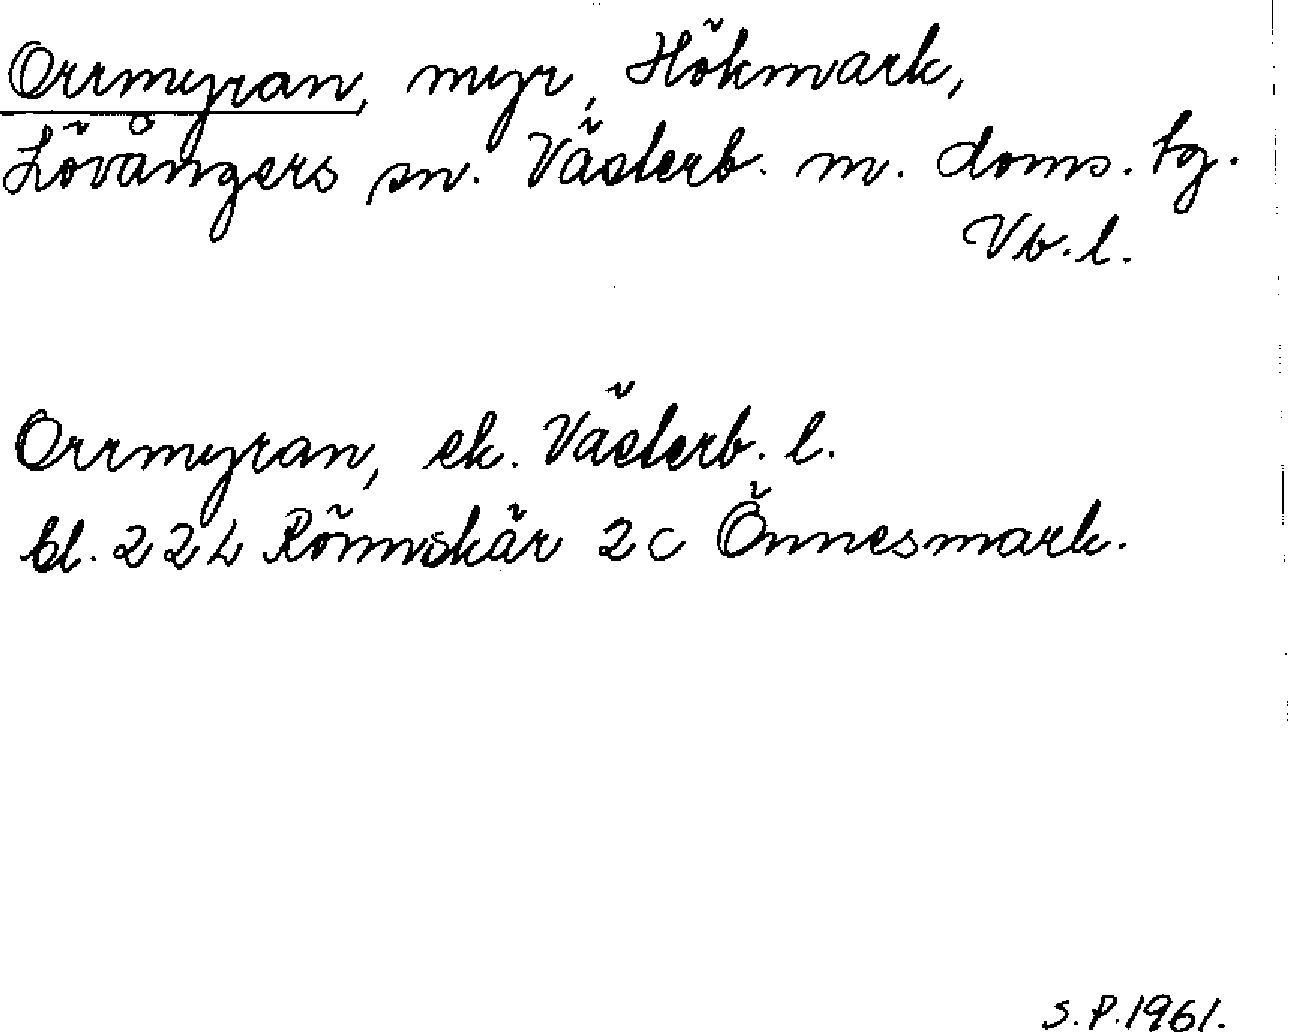 Orrmyran, myr, Hökmark,
Lövångers sn. Västerb. m. doms. tg.
Vb. l.
Orrmyran, ek. Västerb. l.
bl. 22L Rönnskär 2c Önnesmark.
S.P. 1961.